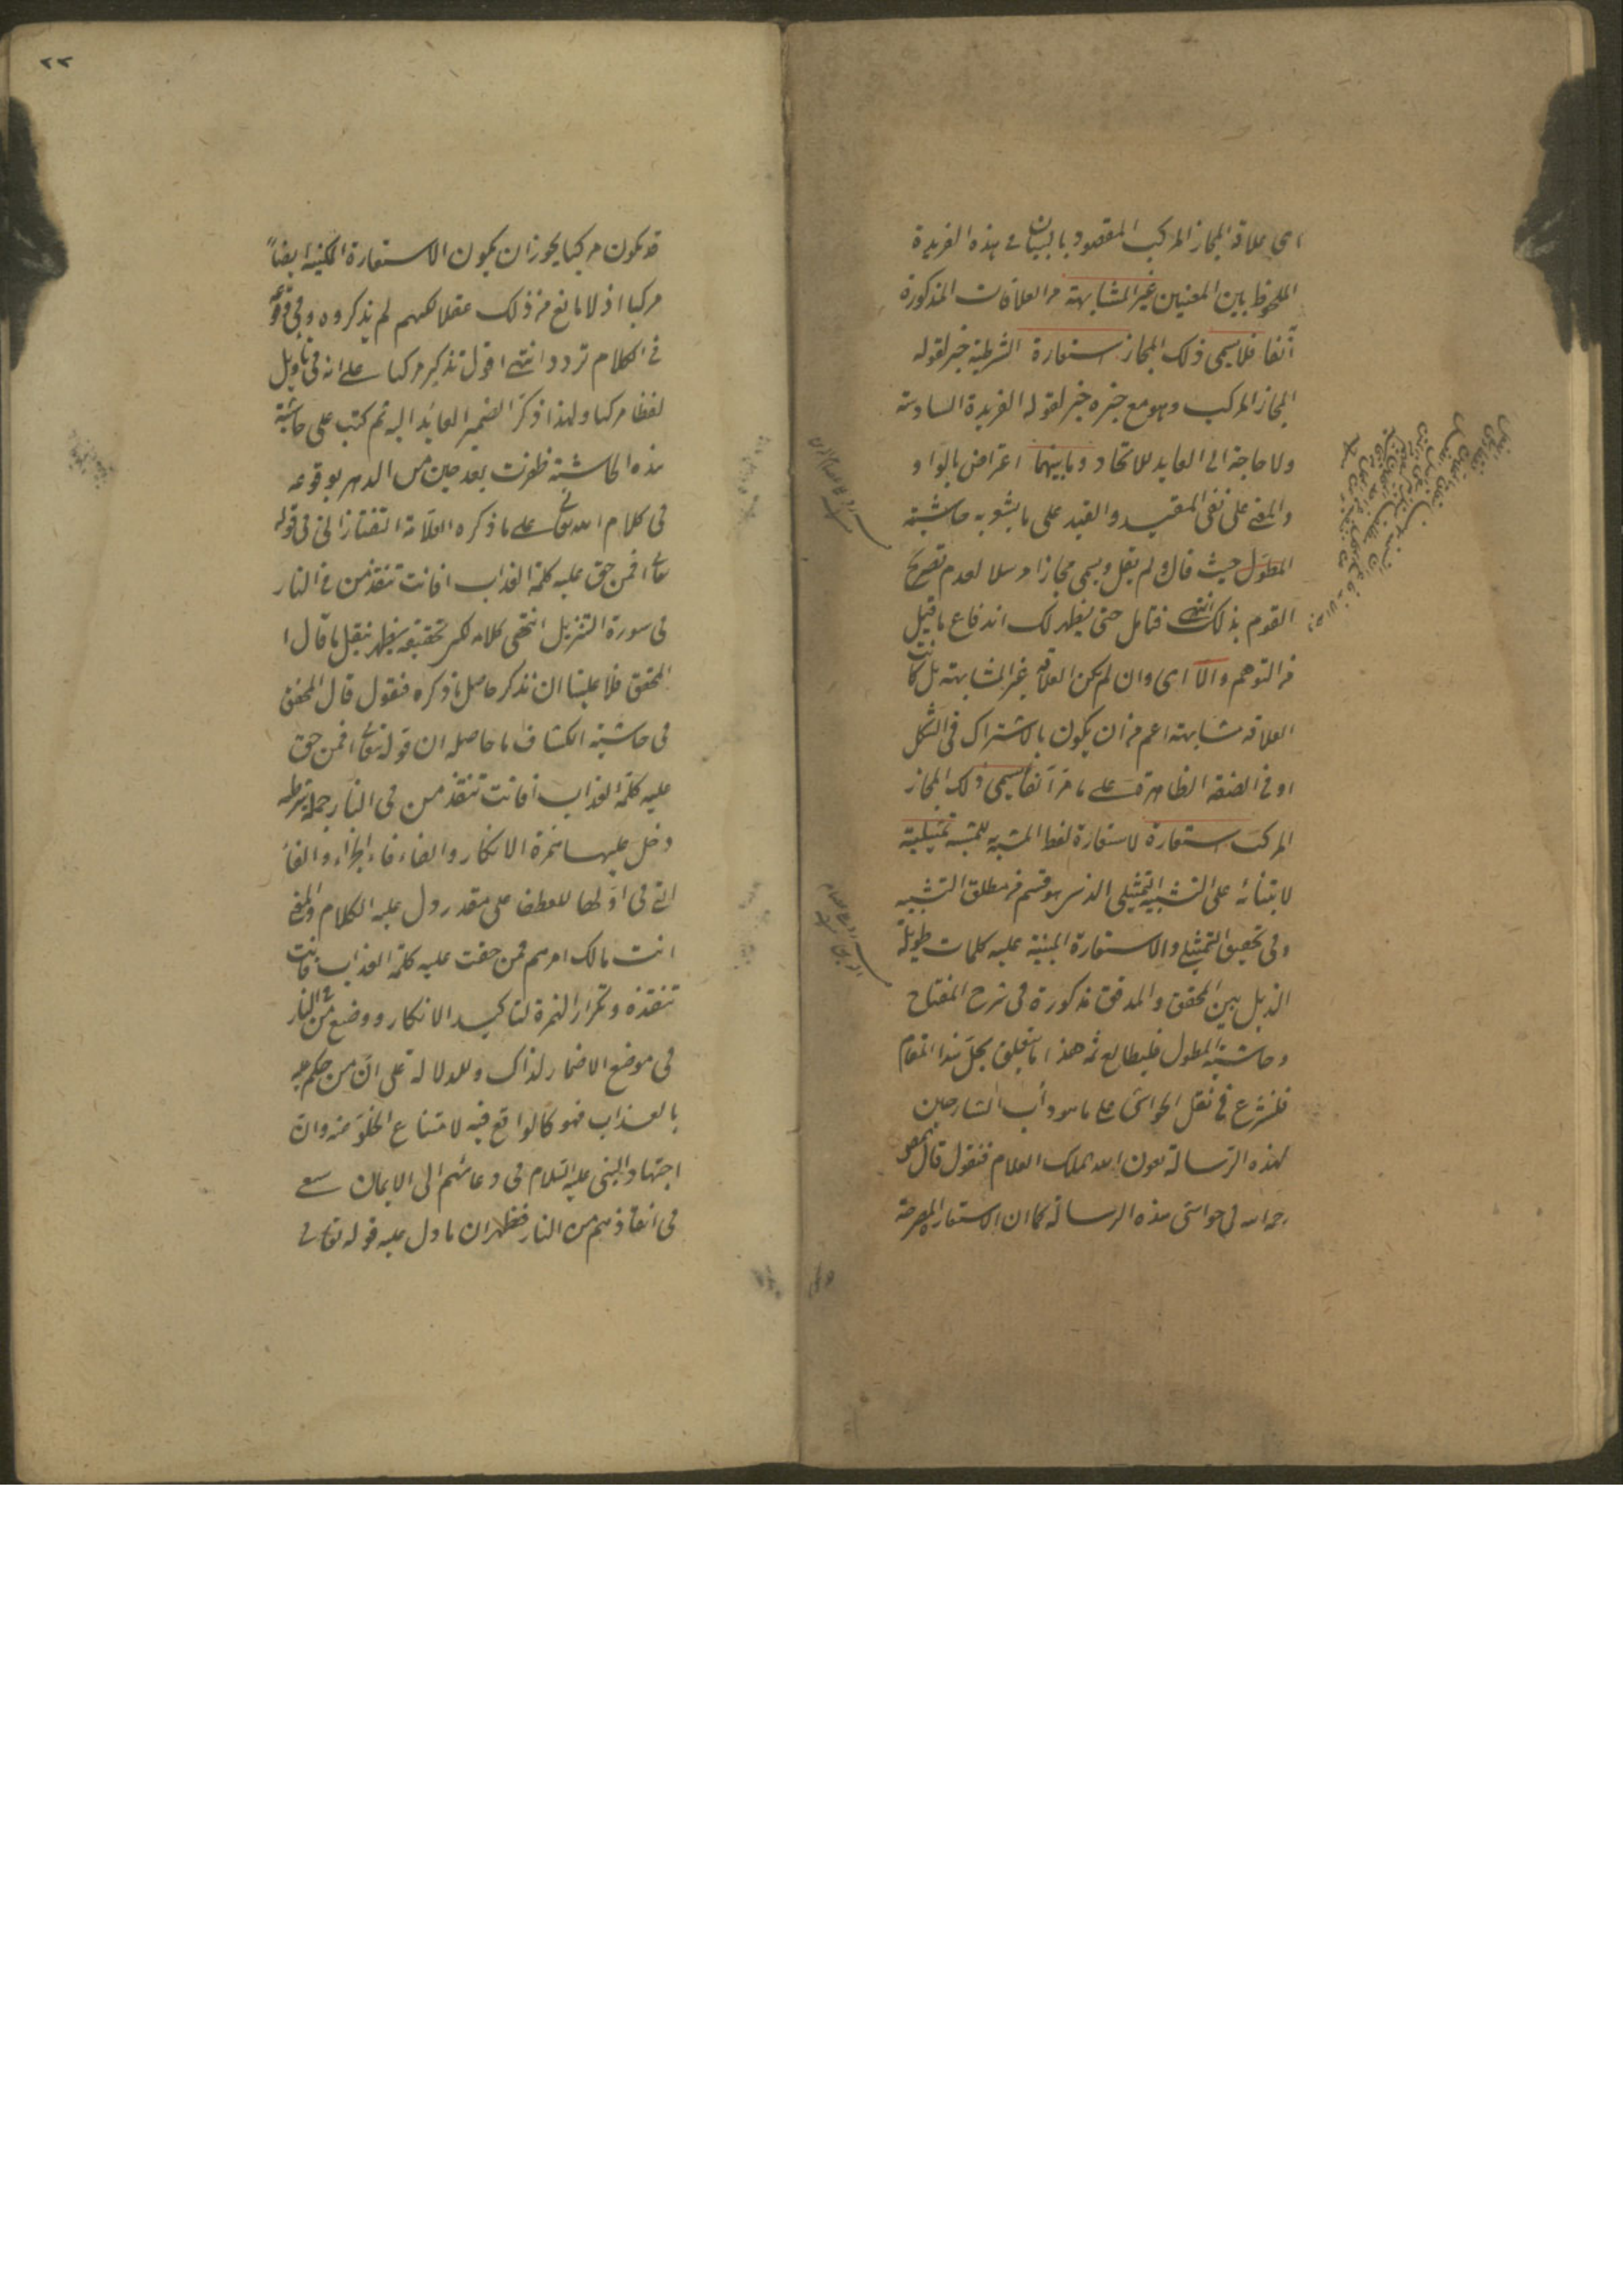 اى علاقة المجاز المركب المقصود بالبيان فى هذه الفريدة
الملحوظ بين المعنيين غير المشابهة من العلاقات المذكورة
آنفا فلا يسمى ذلك المجاز استعارة الشرطية خبر لقوله
المجاز المركب وهو مع خبره خبر لقوله الفريدة السادسة
ولا حاجة الى العايد للاتحاد وما بينهما اعتراض بالواو
والمعنى على نفى المقيد والقيد على ما يشير به حاشيته
المطول حيث قال ولم يقل ويسمى مجازا مرسلا لعدم تصريح
القوم بذلك انتهى فتامل حتى يظهر لك اندفاع ما قيل
من التوهم والا اى وان لم يكن العلاقة غير المشابهة بل كانت
العلاقة مشابهة اعم من ان يكون بالاشتراك فى الشكل
او فى الصفة الظاهرة على ما مر آنفا يسمى ذلك المجاز
المركب استعارة لاستعارة لفظ المشبه به للمشبه تمثيلية
لابتنائه على التشبيه التمثيلى الذى هو قسم من مطلق التشبيه
وفى تحقيق التمثيل والاستعارة المبنية عليه كلمات طويلة
الذيل بين المحقق والمدقق مذكورة فى شرح المفتاح
وحاشية المطول فليطالع ثمه هذا ما يتعلق بحل هذا المقام
فلنشرع فى نقل الحواشى على ما هو دأب الشارحين
لهذه الرسالة بعون الله الملك العلام فنقول قال المص
رحمه الله فى حواشى هذه الرسالة كما ان الاستعارة المصرحة
٢٢
قد يكون مركبا يجوز ان يكون الاستعارة المكنية ايضاً
مركبا اذ لا مانع من ذلك عقلا لكنهم لم يذكروه وفى وقوعه
فى الكلام تردد انتهى اقول تذكير مركبا على انه فى تأويل
لفظا مركبا ولهذا ذكر الضمير العايد اليه ثم كتب على حاشية
هذه الحاشية ظفرت بعد حين من الدهر بوقوعه
فى كلام الله تعالى على ما ذكره العلامة التفتازانى فى قوله
تعالى افمن حق عليه كلمة العذاب افانت تنقذ من فى النار
فى سورة التنزيل انتهى كلامه لكن تحقيقه يظهر بنقل ما قال
المحقق فلا علينا ان نذكر حاصل ما ذكره فنقول قال المحقق
فى حاشية الكشاف ما حاصله ان قوله تعالى افمن حق
عليه كلمة العذاب افانت تنقذ من فى النار جملة شرطية
دخل عليها همزة الانكار والفاء فاء الجزاء والفاء
التى فى اولها للعطف على مقدر دل عليه الكلام والمعنى
انت مالك امرهم فمن حقت عليه كلمة العذاب فانت
تنقذه وتكرار الهمزة لتاكيد الانكار ووضع من فى النار
فى موضع الاضمار لذاك وللدلالة على ان من حكم عليه
بالعذاب فهو كالواقع فيه لامتناع الخلو منه وان
اجتهاد النبى عليه السلام فى دعائهم الى الايمان سعى
فى انقاذهم من النار فظهر ان ما دل عليه قوله تعالى